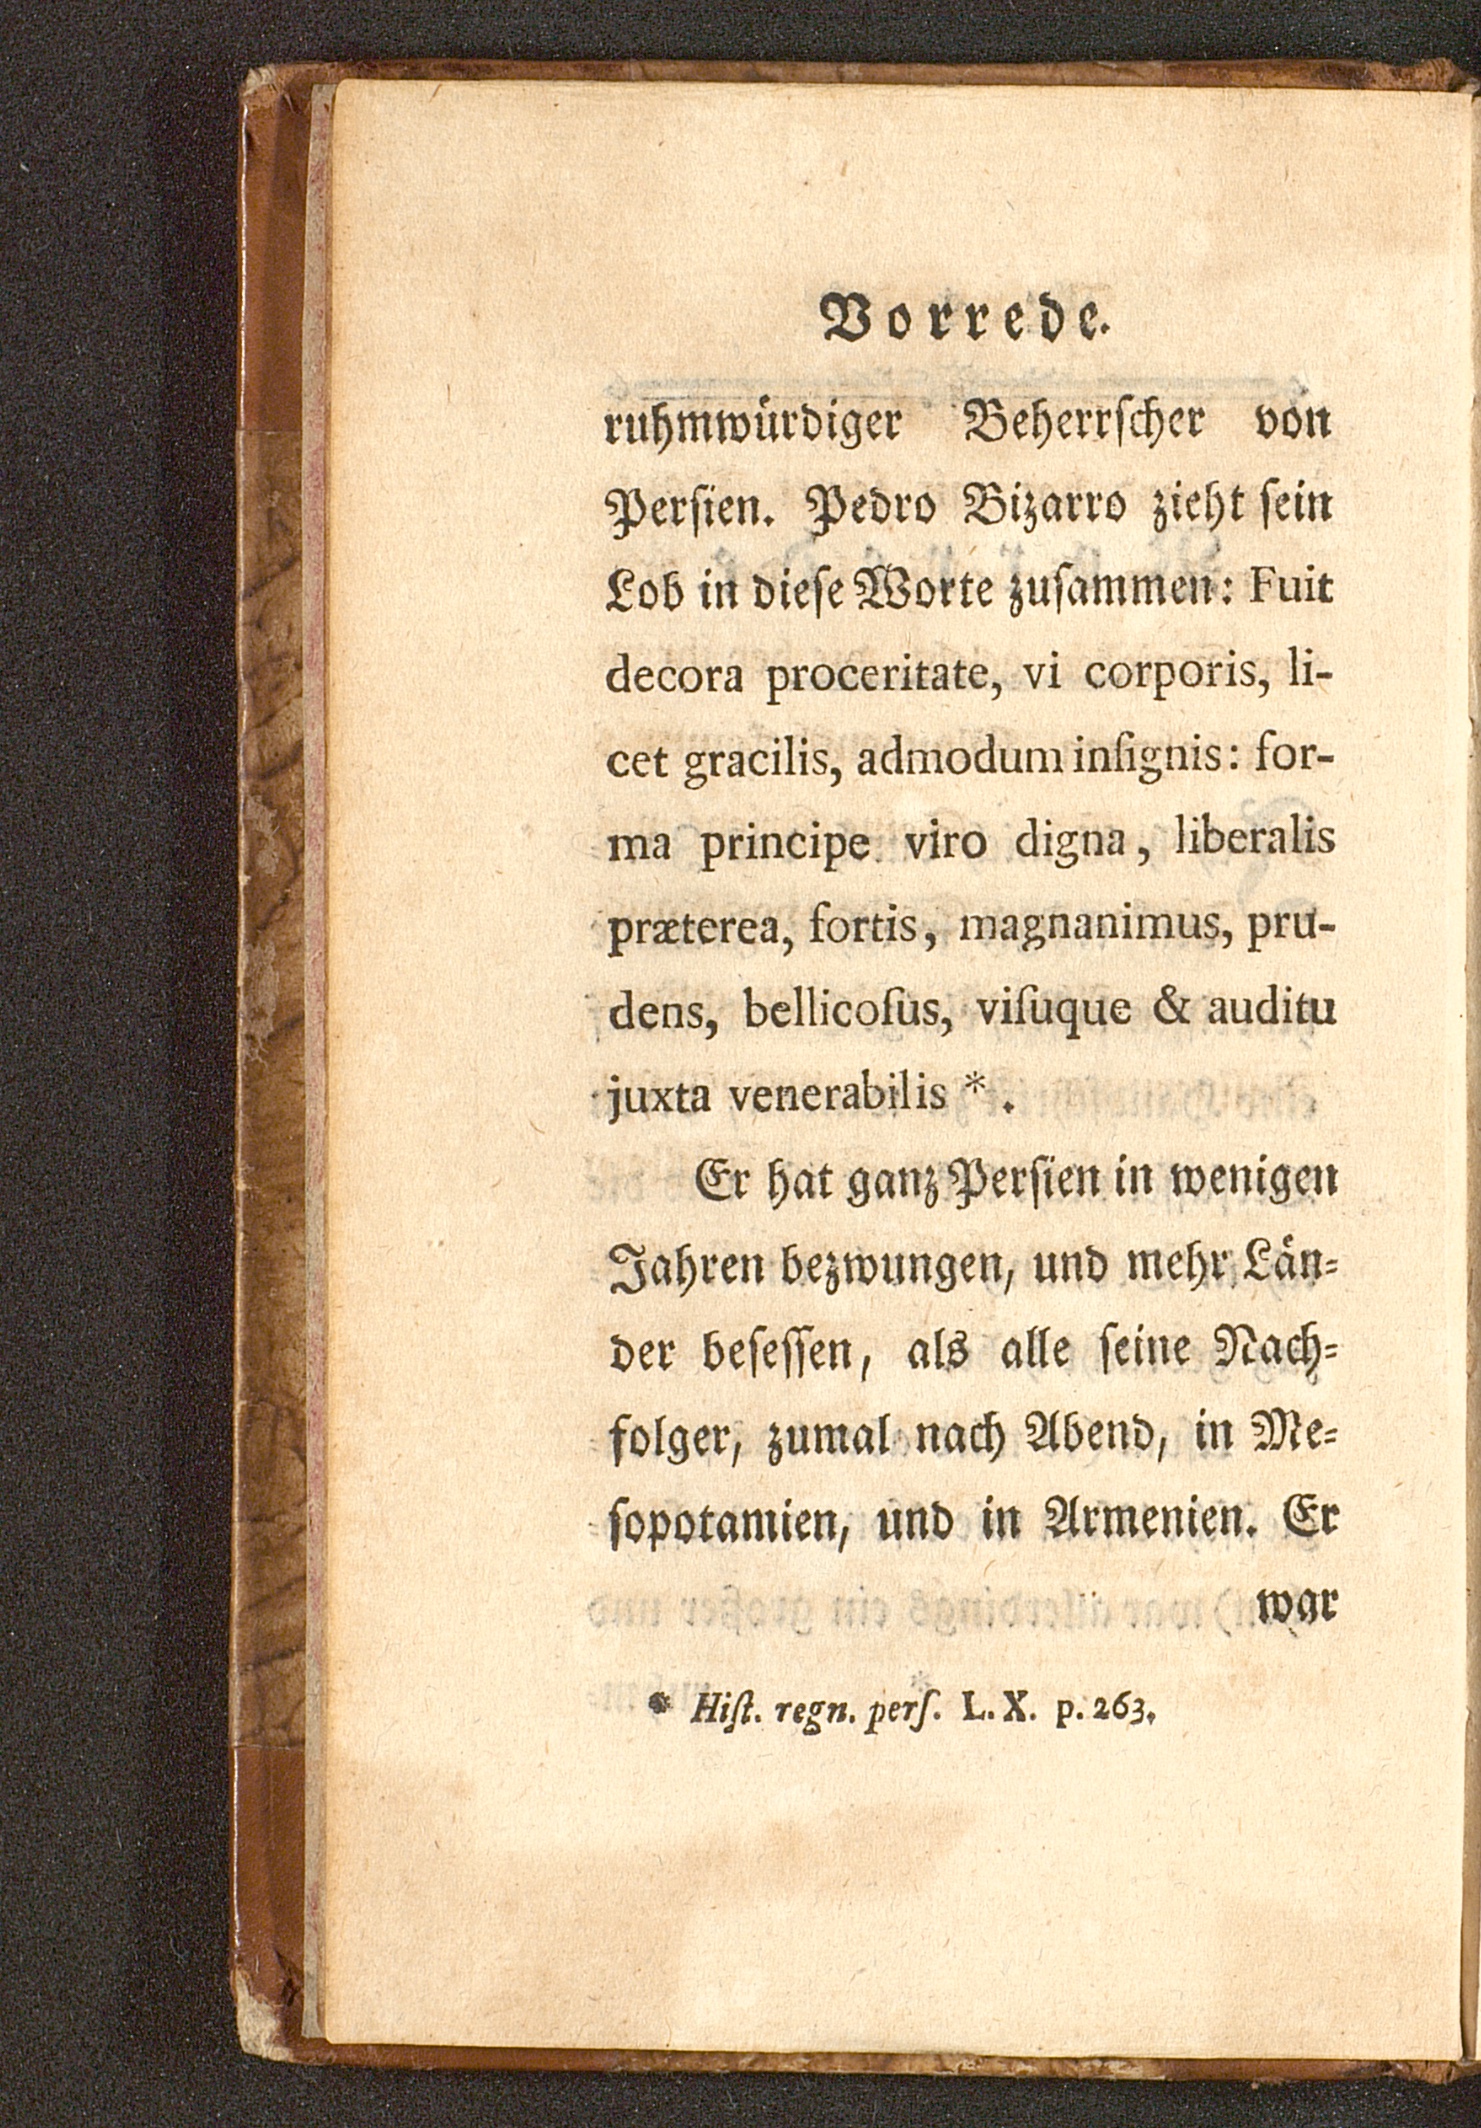 Vorrede.
ruhmwürdiger Beherrſcher von
Perſien. Pedro Bizarro zieht ſein
Lob in dieſe Worte zuſammen: Fuit
decora proceritate, vi corporis, li-
cet gracilis, admodum inſignis: for-
ma principe viro digna, liberalis
præterea, fortis, magnanimus, pru-
dens, bellicoſus, viſuque & auditu
juxta venerabilis *.
Er hat ganz Perſien in wenigen
Jahren bezwungen, und mehr Län=
der beſeſſen, als alle ſeine Nach=
folger, zumal nach Abend, in Me=
ſopotamien, und in Armenien. Er
war
* Hiſt. regn. perſ. L. X. p. 263.